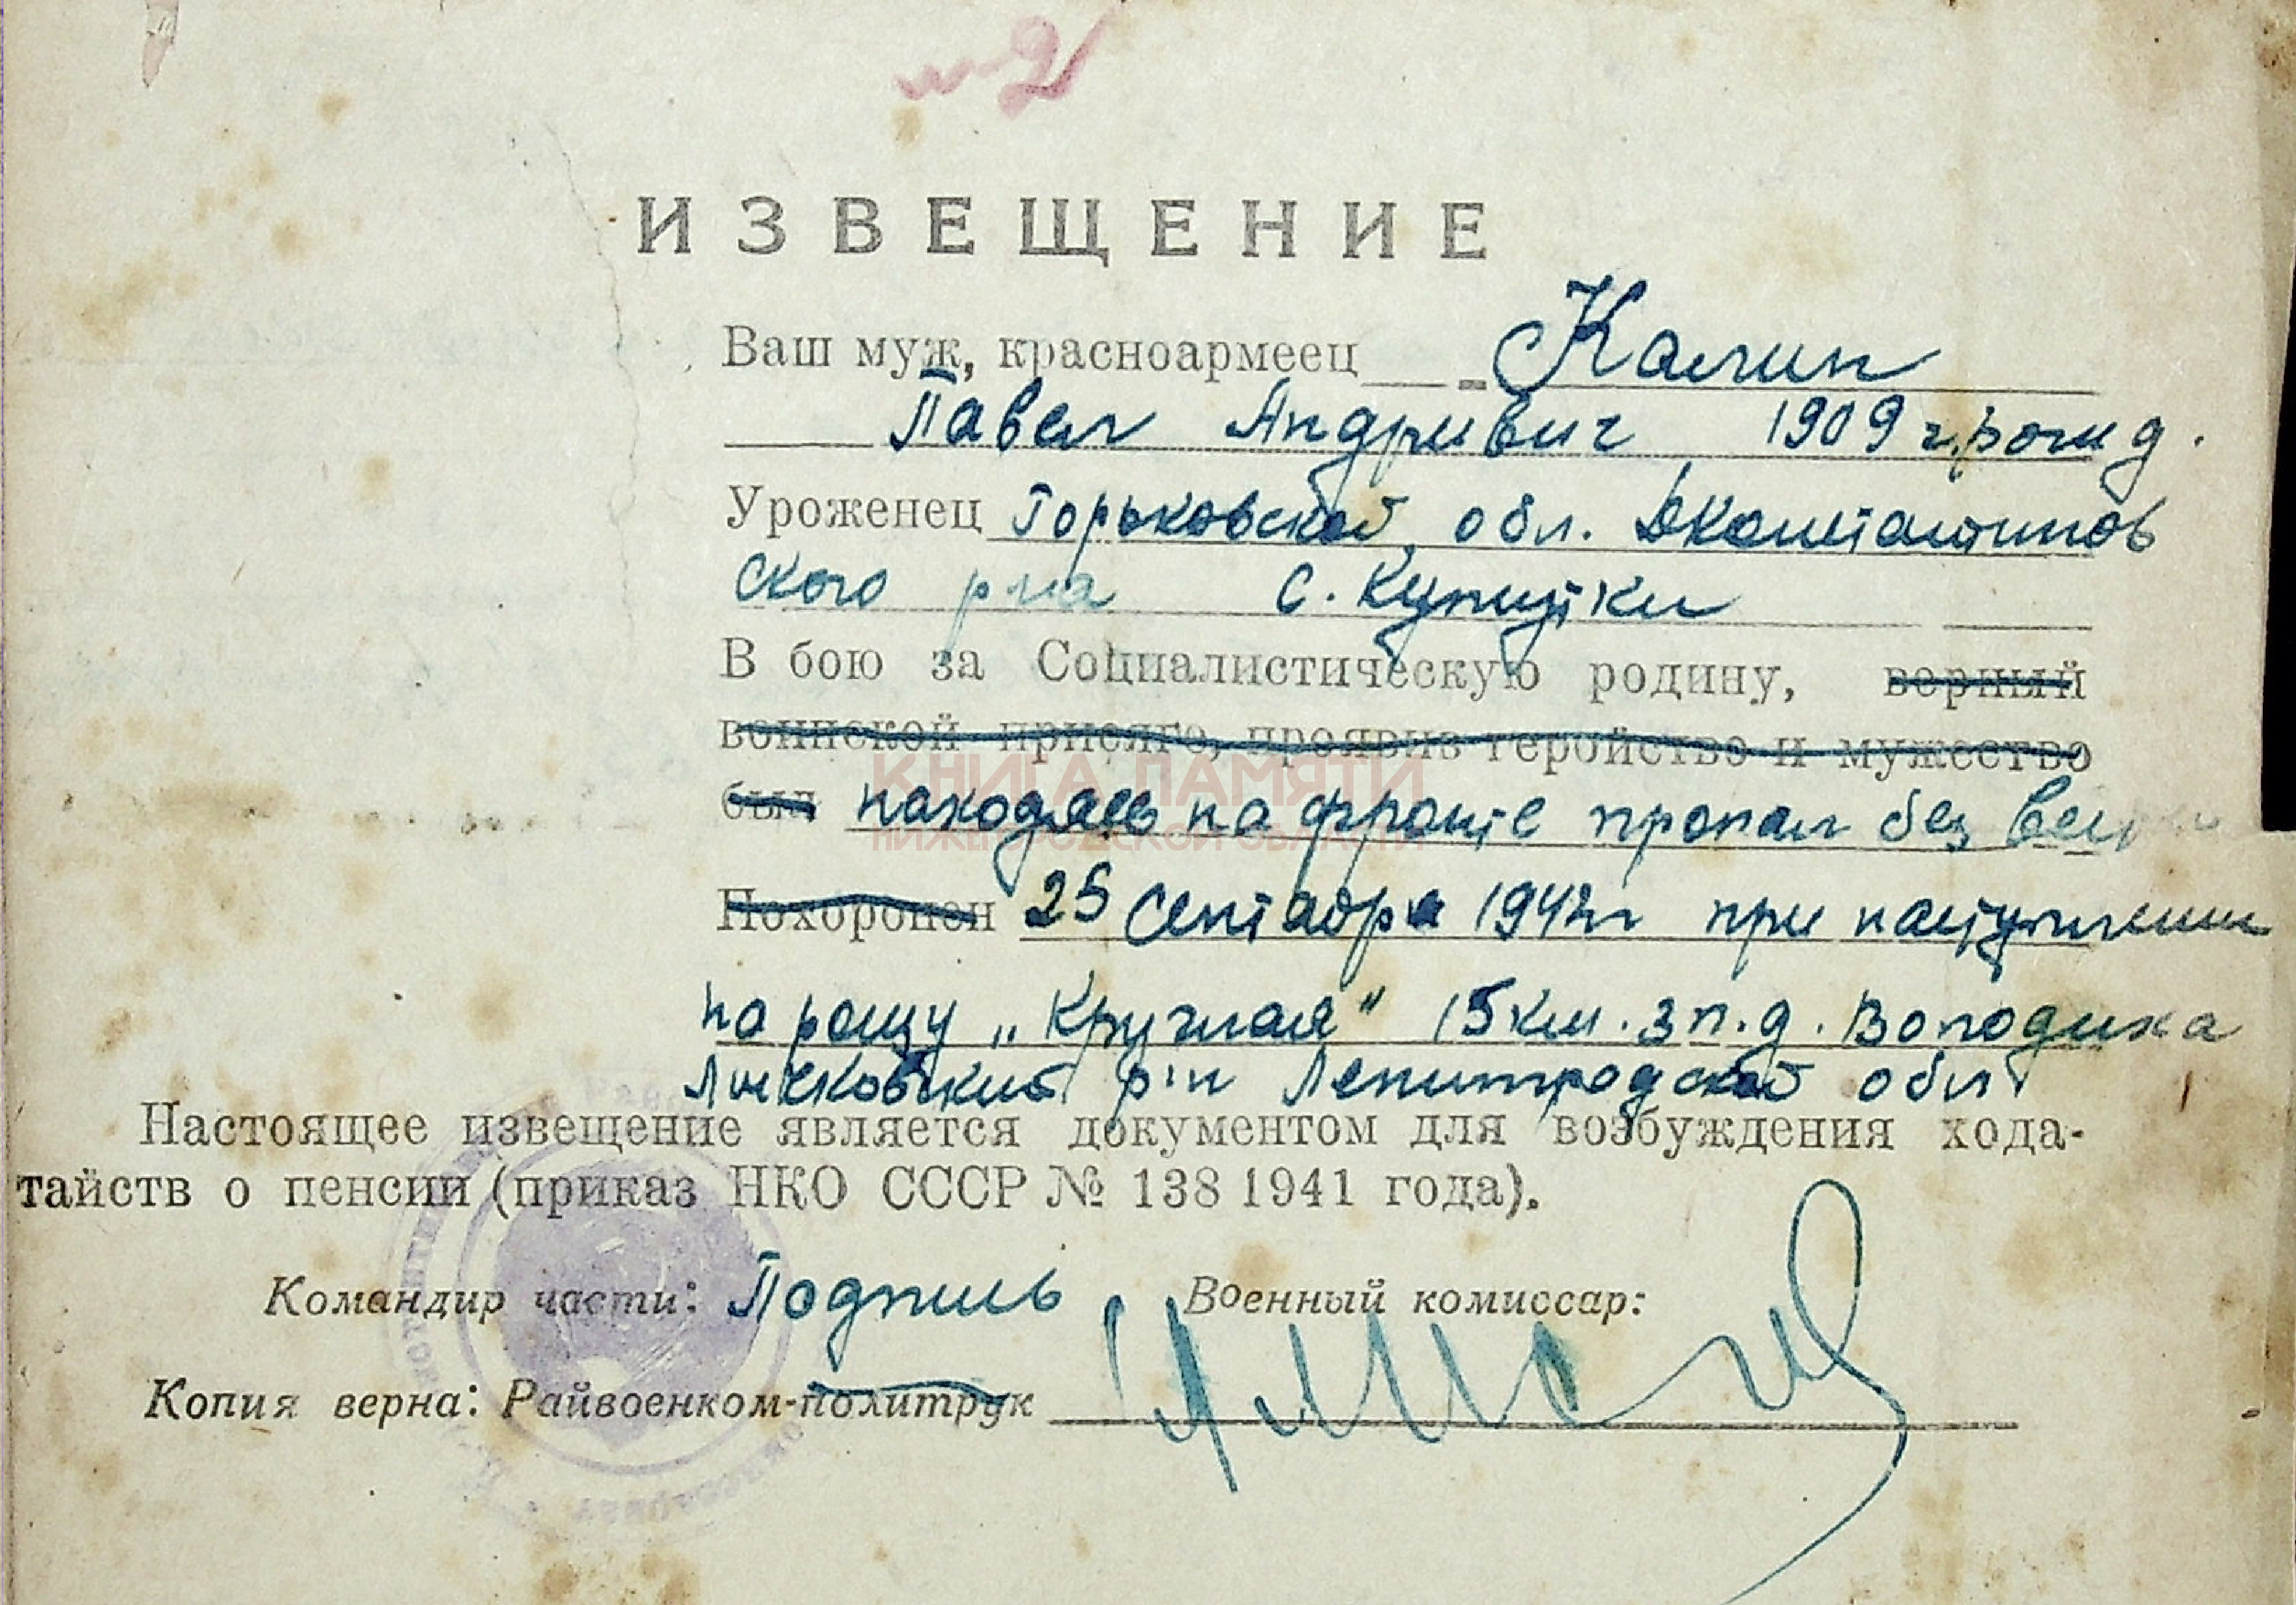 №2
ИЗВЕЩЕНИЕ
Ваш муж, красноармеец Калин
Павел Андривич 1909 г.рожд.
Уроженец Горьковской обл. Дконстантинов
ского р-на с.
В бою за Социалистическую родину, верный
воинской присяге, проявив геройство и мужество
КНИГА ПАМЯТИ
был находясь на фронте пропал без вести
НИЖЕГОРОДСКОЙ ОБЛАСТИ
Похоронен 25 сентября 1942г при наступлении
на рощу „Круглая" 15км. зп. д.
Лычковский р-н Ленинградской обл
Настоящее извещение является документом для возбуждения хода-
тайств о пенсии (приказ НКО СССР № 138 1941 года).
Командир части: Подпись Военный комиссар:
Копия верна: Райвоенком-политрук